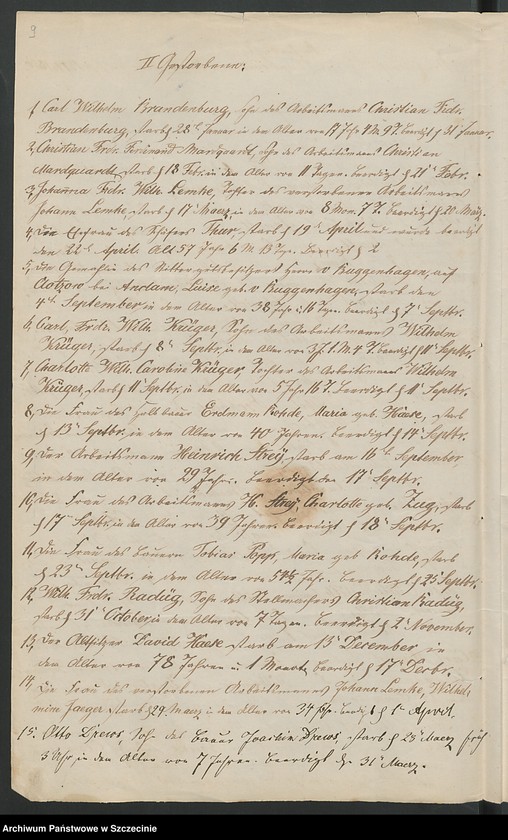 9
II Gestorbene:
1, Carl Wilhelm Brandenburg, Sohn des Arbeitsmanns Christian Frdr.
Brandenburg, starb d 28t Januar in dem Alter von 17 Jhr 4 M 9 T beerdigt d 31 Januar.
2, Christian Frdr. Ferdinand Mandquardt, Sohn des Arbeitsmanns Christian
Mandquardt, starb d 18 Febr. in dem Alter von 11 Tagen. beerdigt d 21t Febr.
3, Johanna Frdr. Wilh. Lemke, Tochter des verstorbenen Arbeitsmanns
Johann Lemke, starb d 17t Maerz, in dem Alter von 8 Mon. 7 T. beerdigt d 20 Maerz.
4, Die Ehefrau des Schäfers Thur, starb d 19t April und wurde beerdigt
den 22t April. Alt 57 Jahr 6 M 13 Tge.
5, Die Gemahlin des Rittergutsbesitzers Herrn v Buggenhagen, auf
bei Anclam, Luise geb. v Buggenhagen, starb den
4t September in dem Alter von 38 Jahr 16 Tgen. beerdigt d 7t Septbr.
6, Carl, Frdr. Wilh. Krüger, Sohn des Arbeitsmanns Wilhelm
Krüger, starb d 8t Septbr. in dem Alter von 3 J. 1. M 4 T. beerdigt d 11t Septbr.
7, Charlotte Wilh. Caroline Krüger, Tochter des Arbeitsmanns Wilhelm
Krüger, starb d 11 Septbr. in dem Alter von 5 Jahr 16 T. beerdigt d 11t Septbr.
8, Die Frau des Halbbauer Erdmann Rohde, Maria geb. Haese, starb
d 13t Septbr. in dem Alter von 40 Jahren. beerdigt d 14t Septbr.
9, Der Arbeitsmann Heinrich Strey, starb am 16t September
in dem Alter von 29 Jahr. beerdigt den 17t Septbr.
10, Die Frau des Arbeitsmanns H. Strey, Charlotte geb. Zug, starb
d 17t Septbr. in dem Alter von 39 Jahren. beerdigt d 18t Septbr.
11, Die Frau des Bauern Tobias Popp, Maria geb Rohde, starb
d 23t Septbr. in dem Alter von 54½ Jahr. beerdigt d 25t Septbr.
12, Wilh. Frdr. Radüg, Sohn des Stellmachers Christian Radüg,
starb d 31t October, in dem Alter von 7 Tagen. beerdigt d 2t November.
13, Der Altsitzer David Haese starb am 13t December in
dem Alter von 78 Jahren u 1 Monat, beerdigt d 17t Decbr.
14, Die Frau des verstorbenen Arbeitsmanns Johann Lemke, Wilhel-
mine Jaeger starb d 29. Maerz in dem Alter von 34 Jahr. beerdigt d 1t April.
15. Otto Drews, Sohn des Bauer Joachim Drews, starb d 25t Maerz früh
5 Uhr, in dem Alter von 7 Jahren. beerdigt d. 31t Maerz.
Archiwum Państwowe w Szczecinie